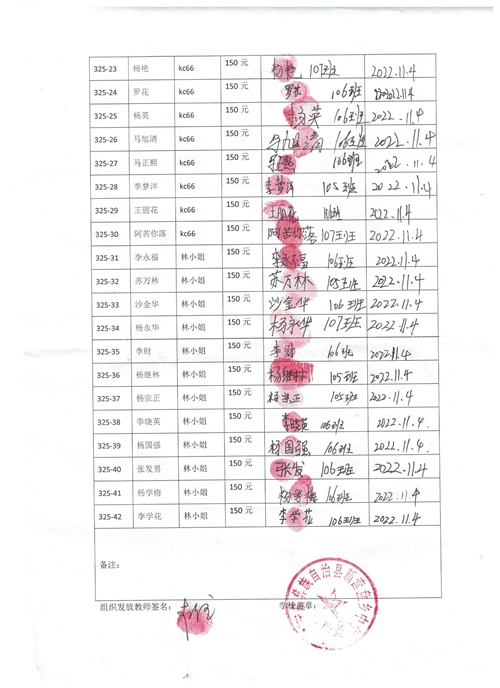 325-23 杨艳 kc66 150 元 杨艳 107班 2022.11.4
325-24 罗花 kc66 150 元 罗花 106班 2022.11.4
325-25 杨英 kc66 150 元 杨英 106班 2022.11.4
325-26 马旭清 kc66 150 元 马旭清 106班 2022.11.4
325-27 马正熙 kc66 150 元 106班 2022.11.4
325-28 李梦洋 kc66 150 元 李梦洋 105班 2022.11.4
325-29 王丽花 kc66 150 元 王丽花 2022.11.4
325-30 阿苦你落 kc66 150 元 阿苦你落 107班 2022.11.4
325-31 李永福 林小姐 150 元 李永福 106班 2022.11.4
325-32 苏万林 林小姐 150 元 苏万林 105班 2022.11.4
325-33 沙金华 林小姐 150 元 沙金华 106班 2022.11.4
325-34 杨永华 林小姐 150 元 杨永华 107班 2022.11.4
325-35 李财 林小姐 150 元 李财 106班 2022.11.4
325-36 杨继林 林小姐 150 元 杨继林 105班 2022.11.4
325-37 杨宗正 林小姐 150 元 杨宗正 105班 2022.11.4
325-38 李晓英 林小姐 150 元 李晓英 106班 2022.11.4
325-39 杨国强 林小姐 150 元 杨国强 106班 2022.11.4
325-40 张发男 林小姐 150 元 张发 106班 2022.11.4
325-41 杨学梅 林小姐 150 元 杨学梅 106班 2022.11.4
325-42 李学花 林小姐 150 元 李学花 106班 2022.11.4
备注：
组织发放教师签名： 学校盖章：
彝族自治县新营盘乡中